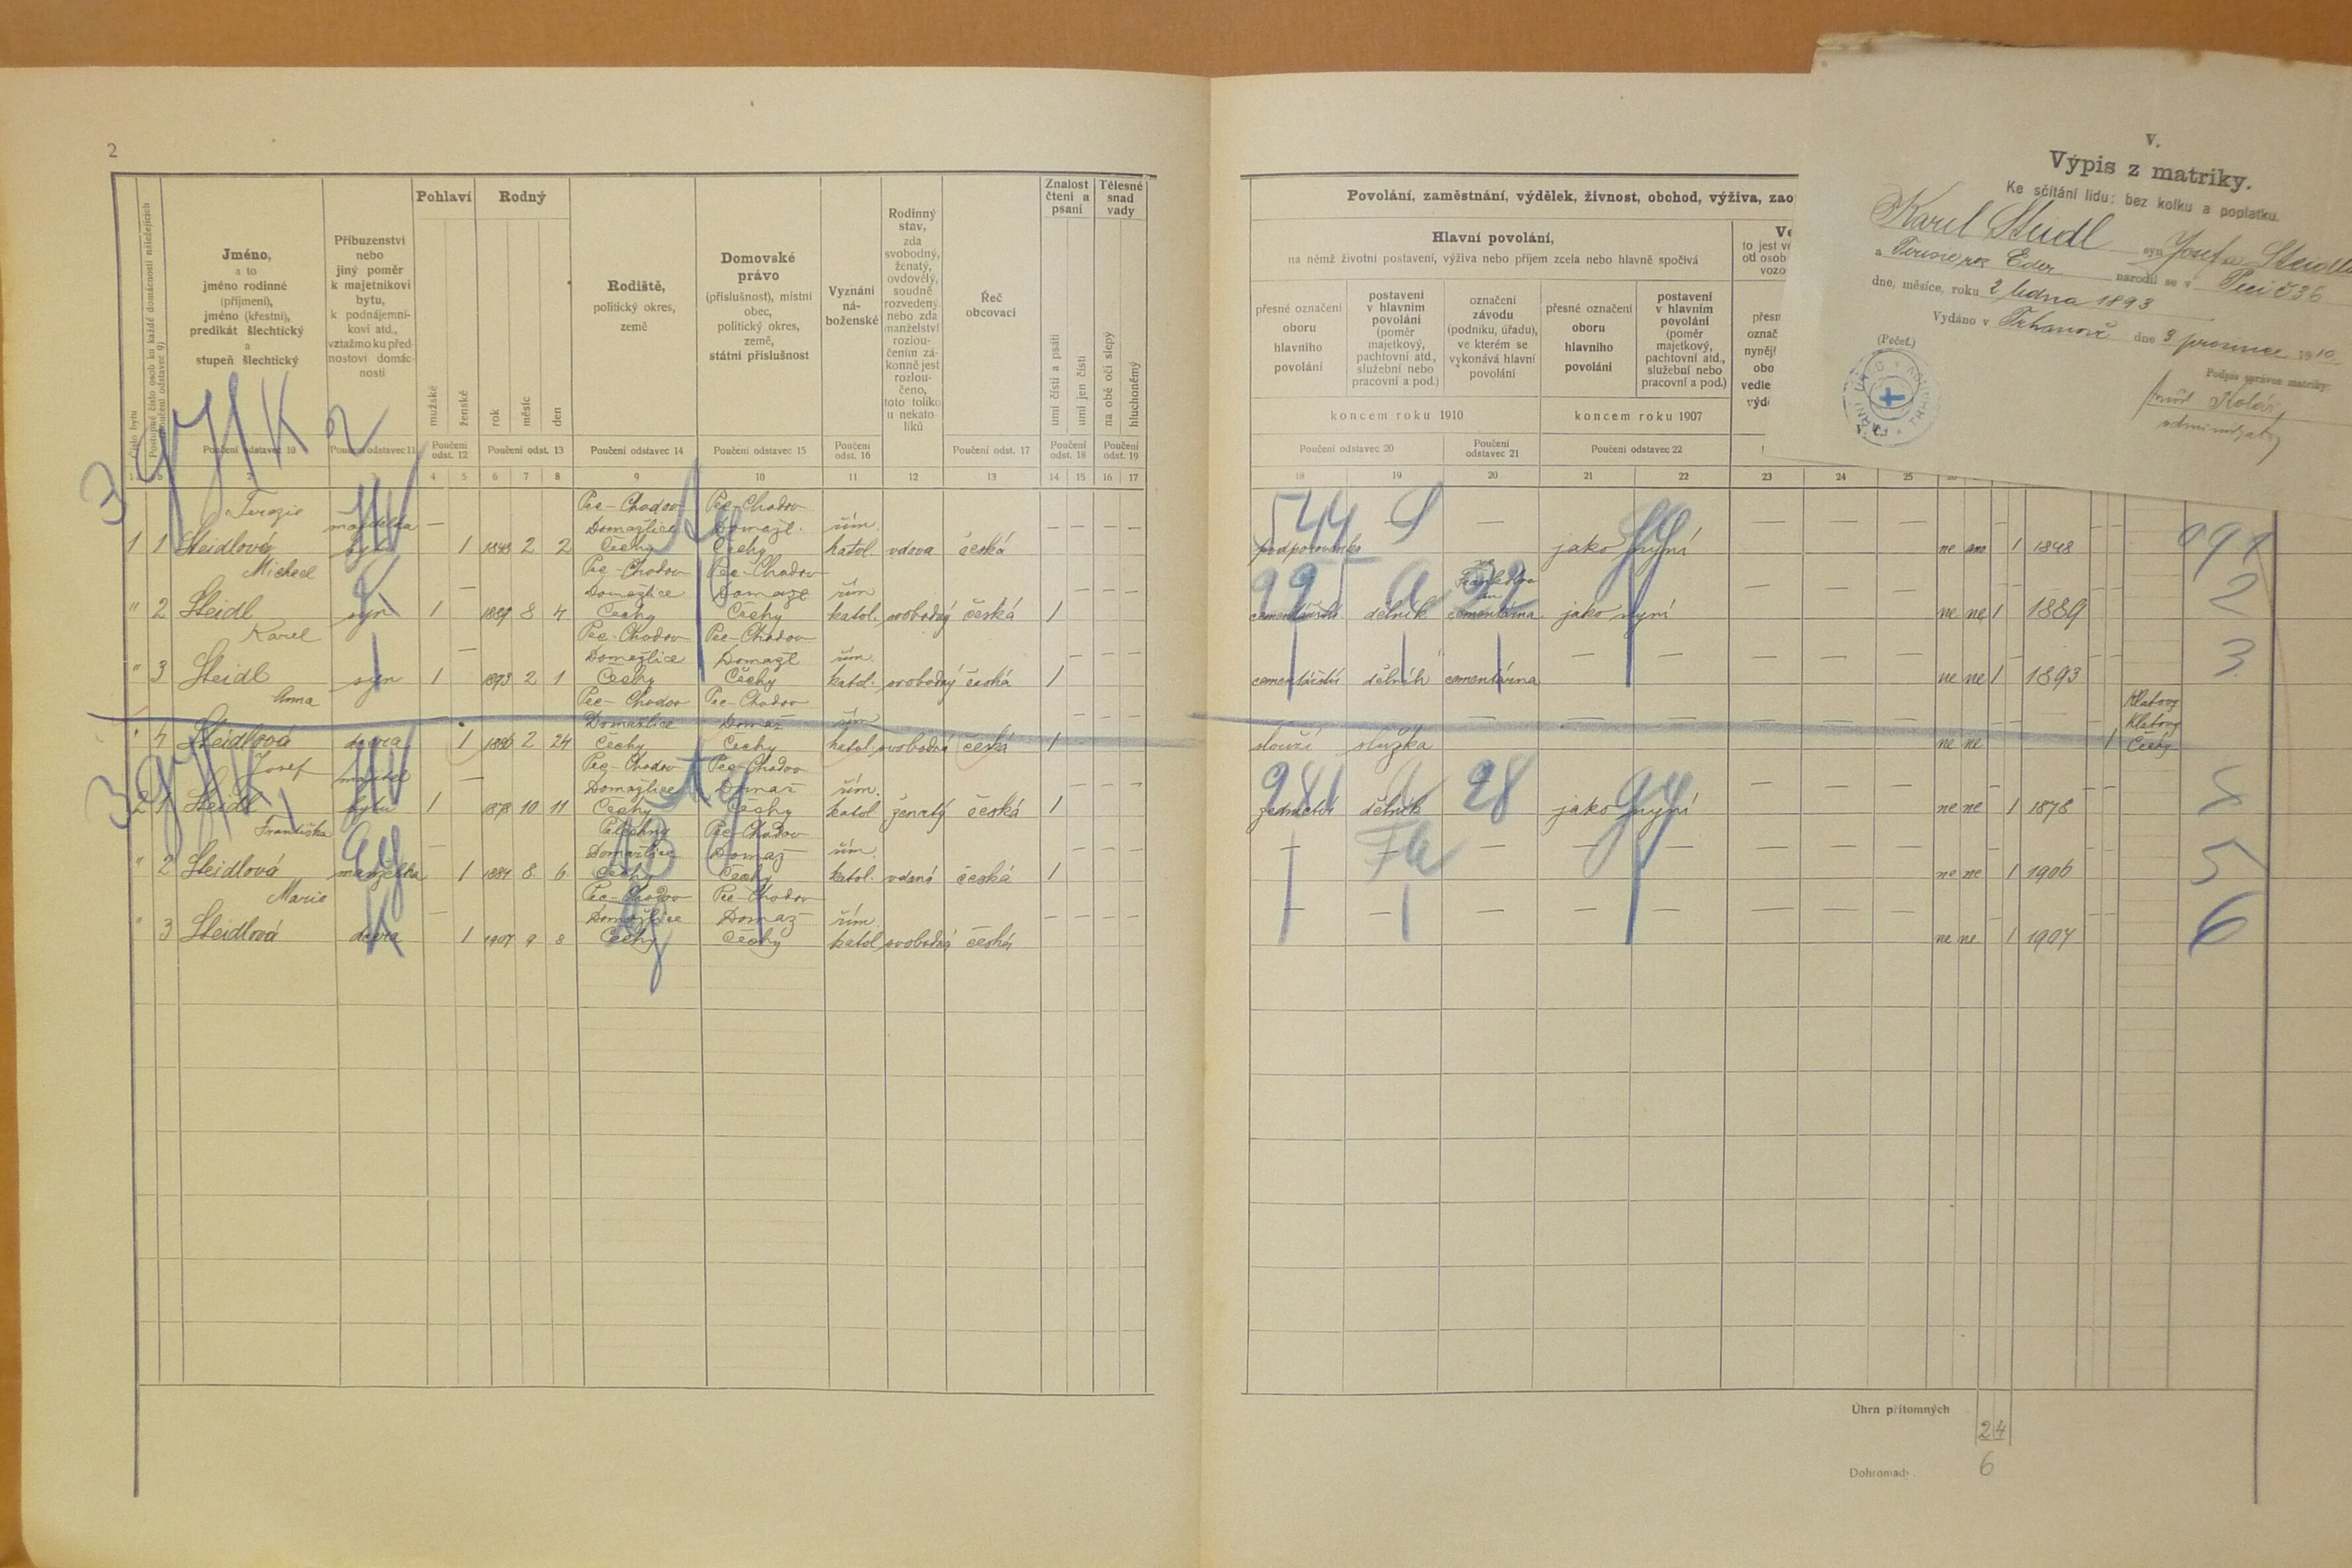 2
Číslo bytu
Postupné číslo osob ku každé domácnosti náležejících
(Poučení odstavec 9)
Jméno,
a to
jméno rodinné
(příjmení),
jméno (křestní),
predikát šlechtický
a
stupeň šlechtický
Příbuzenství
nebo
jiný poměr
k majetníkovi
bytu,
k podnájemní-
kovi atd.,
vztažmo ku před-
nostovi domác-
nosti
Pohlaví
mužské
ženské
Rodný
rok
měsíc
den
Rodiště,
politický okres,
země
Domovské
právo
(příslušnost), místní
obec,
politický okres,
země,
státní příslušnost
Vyznání
ná-
boženské
Rodinný
stav,
zda
svobodný,
ženatý,
ovdovělý,
soudně
rozvedený
nebo zda
manželství
rozlou-
čením zá-
konně jest
rozlou-
čeno,
toto toliko
u nekato-
líků
Řeč
obcovací
Znalost
čtení a
psaní
umí čísti a psáti
umí jen čísti
Tělesné
snad
vady
na obě oči slepý
hluchoněmý
Poučení odstavec 10
Poučení odstavec 11
Poučení
odst. 12
Poučení odst. 13
Poučení odstavec 14
Poučení odstavec 15
Poučení
odst. 16
Poučení odst. 17
Poučení
odst. 18
Poučení
odst. 19
2 3 4 5 6 7 8 9 10 11 12 13 14 15 16 17
Terezie Pec-Chodov Pec-Chodov
majitelka — Domažlice Domažl. řím. — — — —
1 1 Steidlová bytu 1 1843 2 2 Čechy Čechy katol. vdova česká
Michael Pec-Chodov Pec-Chodov
— Domažlice Domažl řím — — —
" 2 Steidl syn 1 1889 8 4 Čechy Čechy katol. svobodný česká 1
Karel Pec-Chodov Pec-Chodov
— Domažlice Domažl řím. — — —
" 3 Steidl syn 1 1893 2 1 Čechy Čechy katol. svobodný česká 1
Anna Pec-Chodov Pec-Chodov
Domažlice Domaž řím — — —
" 4 Steidlová dcera 1 1886 2 24 Čechy Čechy katol. svobodná česká 1
Josef Pec-Chodov Pec-Chodov
majitel — Domažlice Domaž řím. — — —
2 1 Steidl bytu 1 1878 10 11 Čechy Čechy katol ženatý česká 1
Františka Pec-Chodov
— Domažlice Domaž řím. — — —
" 2 Steidlová manželka 1 1884 8 6 Čechy Čechy katol. vdaná česká 1
Marie Pec-Chodov Pec-Chodov
— Domažlice Domaz řím. — — — —
" 3 Steidlová dcera 1 1907 9 8 Čechy Čechy katol svobodná česká
Povolání, zaměstnání, výdělek, živnost, obchod, výživa, zao
Hlavní povolání,
na němž životní postavení, výživa nebo příjem zcela nebo hlavně spočívá
přesné označení
oboru
hlavního
povolání
postavení
v hlavním
povolání
(poměr
majetkový,
pachtovní atd.,
služební nebo
pracovní a pod.)
označení
závodu
(podniku, úřadu),
ve kterém se
vykonává hlavní
povolání
přesné označení
oboru
hlavního
povolání
postavení
v hlavním
povolání
(poměr
majetkový,
pachtovní atd.,
služební nebo
pracovní a pod.)
koncem roku 1910
koncem roku 1907
Poučení odstavec 20
Poučení
odstavec 21
Poučení odstavec 22
18 19 20 21 22 23 24 25
544
jako nyní ne ano 1 1848
995 22
dělník cementárna jako nyní ne ne 1 1889 2
dělník cementárna ne ne 1 1893 3
Klatovy
Klatovy
slouží služka ne ne 1 Čechy
981 28
dělník jako nyní ne ne 1 1878
ne ne 1 1906 5
ne ne 1 1907 6
Úhrn přítomných
2 4
Dohromady
6
V.
Výpis z matriky.
Ke sčítání lidu: bez kolku a poplatku.
Karel Steidl syn Josefa Steidla
a Terezie roz. Eder narodil se v Peci č 36
dne, měsíce, roku 2 ledna 1893
Vydáno v Trhanově dne 3 prosince 1910
(Pečeť.)
Podpis správce matriky:
Kolář
administrátor